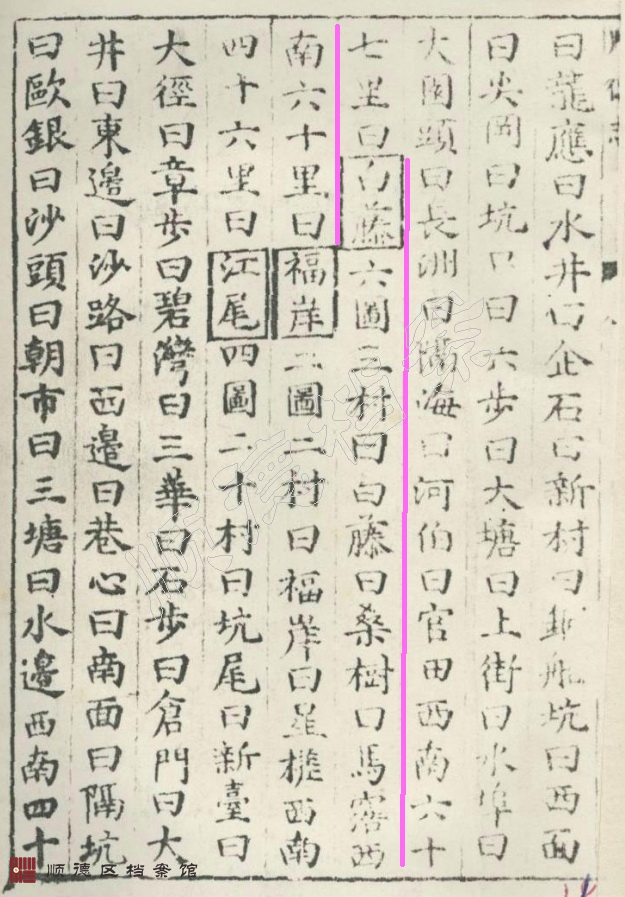 曰龍應曰水井曰企石曰新村曰 坑曰西面
曰尖岡曰坑口曰六步曰大塘曰上街曰水埠曰
大閣頭曰長洲曰隔海曰河伯曰官田西南六十
七里曰白藤六圖三村曰白藤曰桑樹曰馬寧西
南六十里曰福岸二圖二村曰福岸曰 西南
四十六里曰江尾四圖二十村曰坑尾曰新臺曰
大徑曰章步曰碧灣曰三華曰石步曰倉門曰大
井曰東邊曰沙路曰西邊曰巷心曰南面曰隔坑
曰歐銀曰沙頭曰朝市曰三塘曰水邊西南四十
顺德区档案馆